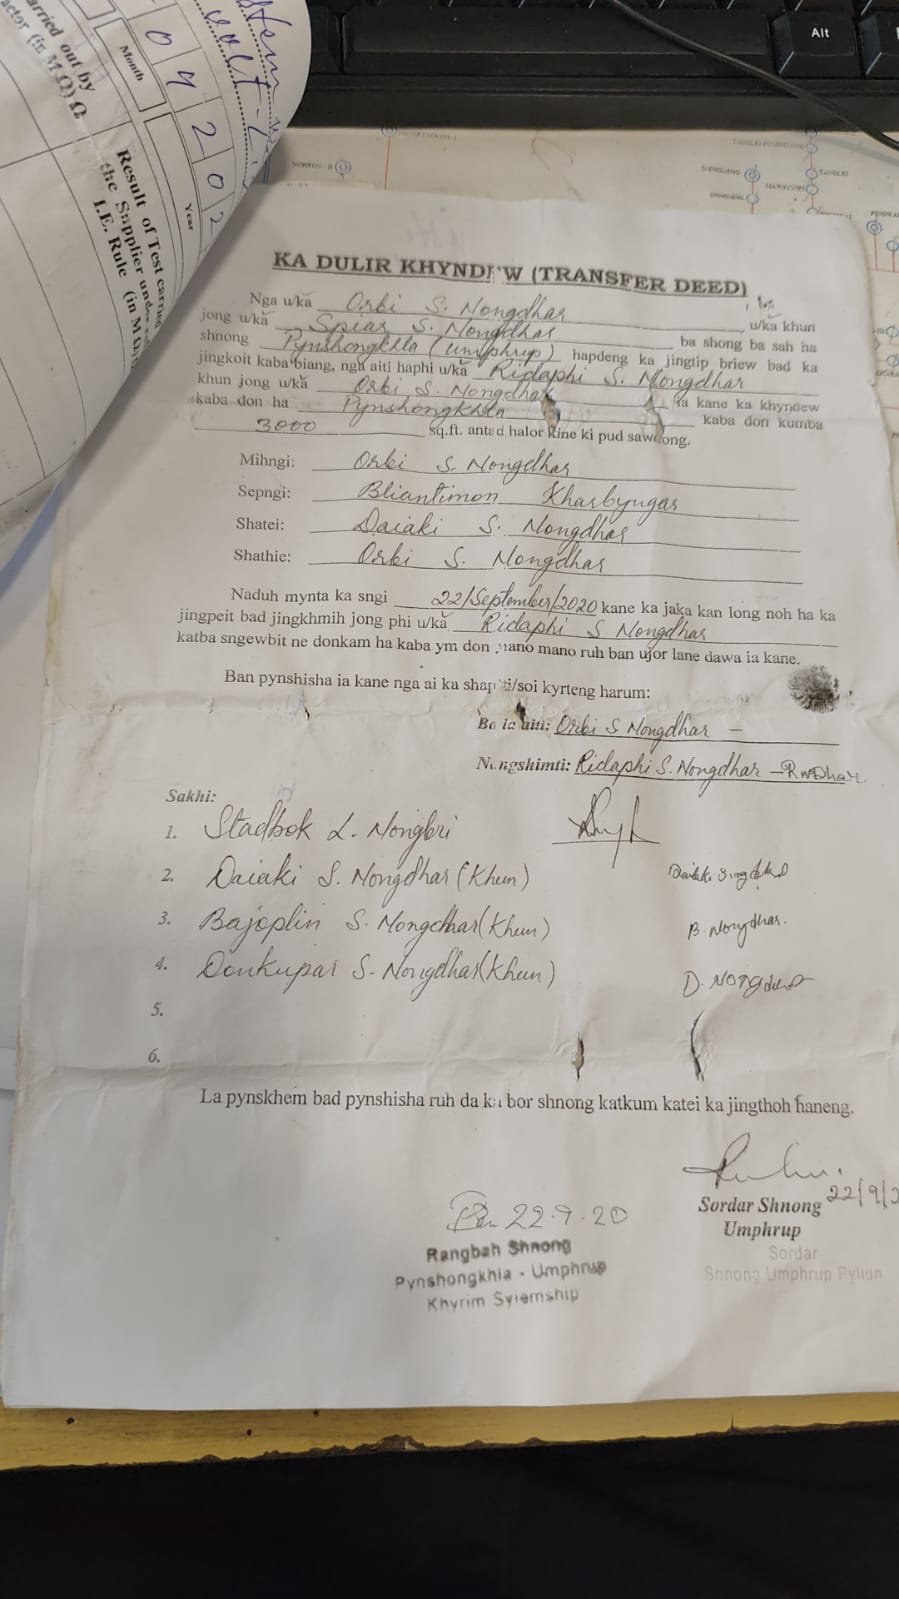 Alt
arried out by
actor (in M Ω) Ω
Month
0 4 2 0 2
Year
Result of Test carried
the Supplier under
I.E. Rule (in M Ω)
TANGLEI
KA DULIR KHYNDEW (TRANSFER DEED)
Nga u/ka Orbi S. Nongdhar u/ka khun
jong u/ka Spiar S. Nongdhar ba shong ba sah ha
shnong Pynshongkhla (Umphrup) hapdeng ka jingtip briew bad ka
jingkoit kaba biang, nga aiti haphi u/ka Ridaphi S. Nongdhar
khun jong u/ka Orbi S. Nongdhar ia kane ka khyndew
kaba don ha Pynshongkhla kaba don kumba
3000 sq.ft. antad halor kine ki pud sawdong.
Mihngi: Orbi S. Nongdhar
Sepngi: Bliantimon Kharbyngar
Shatei: Daiaki S. Nongdhar
Shathie: Orbi S. Nongdhar
Naduh mynta ka sngi 22/September/2020 kane ka jaka kan long noh ha ka
jingpeit bad jingkhmih jong phi u/ka Ridaphi S Nongdhar
katba sngewbit ne donkam ha kaba ym don mano mano ruh ban ujor lane dawa ia kane.
Ban pynshisha ia kane nga ai ka shapti/soi kyrteng harum:
Ba ia aiti: Orbi S Nongdhar –
Nongshimti: Ridaphi S. Nongdhar – RNDhar.
Sakhi:
1. Stadbok L. Nongbri
2. Daiaki S. Nongdhar (Khun)
3. Bajoplin S. Nongdhar (Khun) B. Nongdhar.
4. Donkupar S. Nongdhar (Khun) D. Nongdhar
5.
6.
La pynskhem bad pynshisha ruh da ka bor shnong katkum katei ka jingthoh haneng.
22/9/2
Sordar Shnong
Umphrup
Sordar
Shnong Umphrup Pyllun
22.9.20
Rangbah Shnong
Pynshongkhla - Umphrup
Khyrim Syiemship